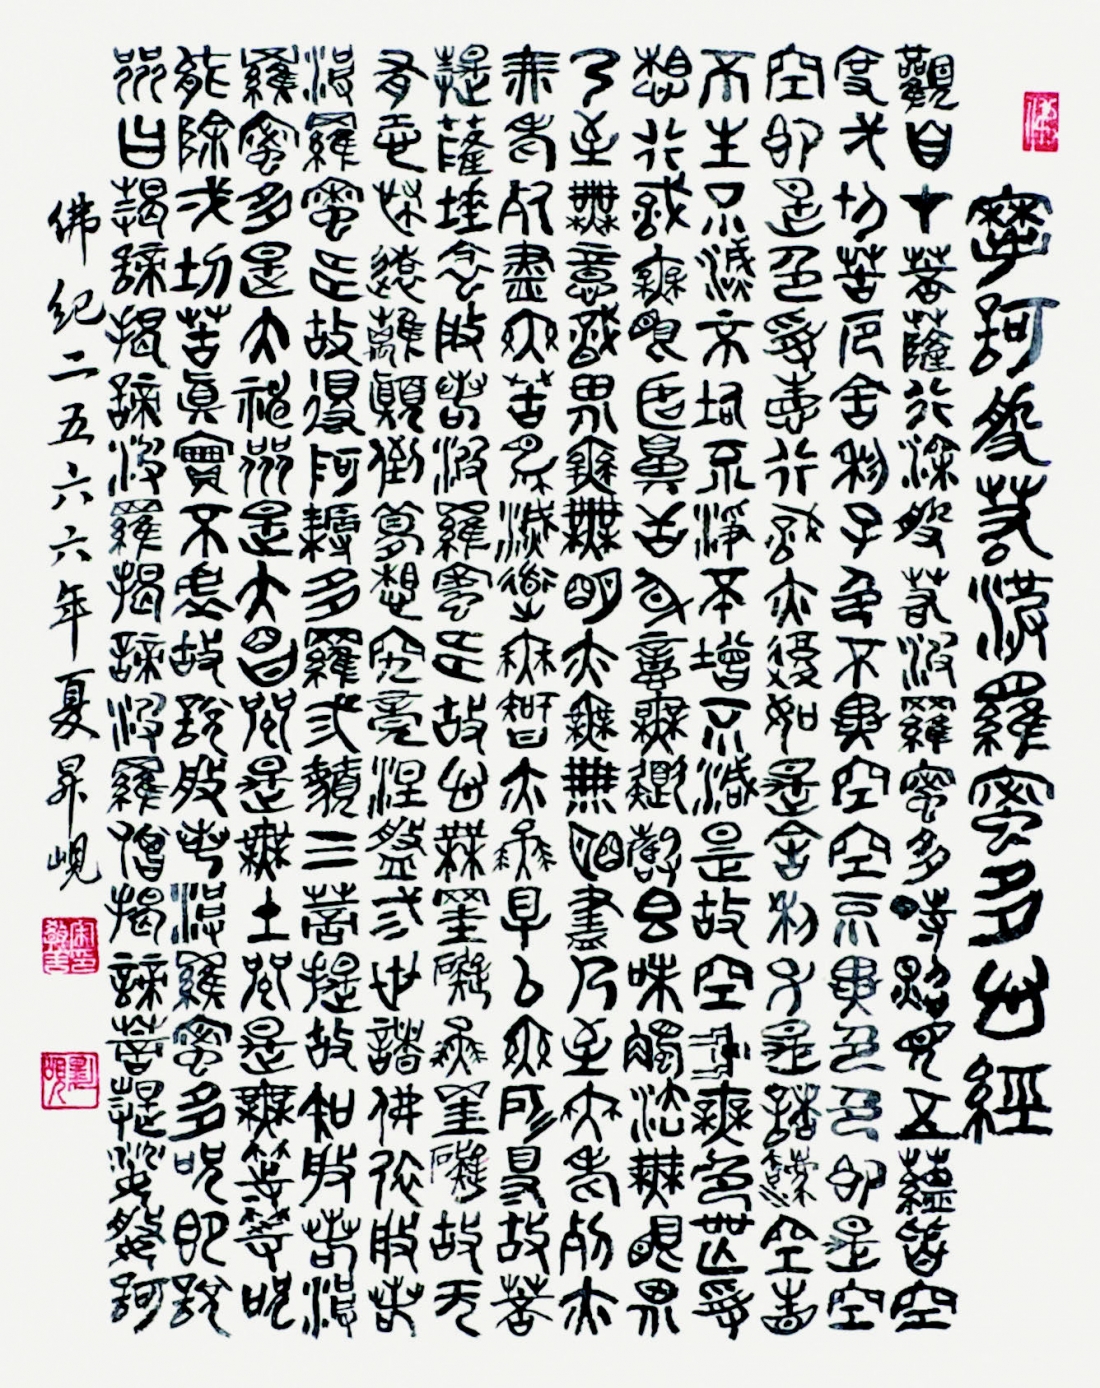 摩訶般若波羅蜜多心經
觀自在菩薩行深般若波羅蜜多時照見五蘊皆空
度一切苦厄舍利子色不異空空不異色色即是空
空即是色受想行識亦復如是舍利子是諸法空相
不生不滅不垢不淨不增不減是故空中無色無受
想行識無眼耳鼻舌身意無色聲香味觸法無眼界
乃至無意識界無無明亦無無明盡乃至無老死亦
無老死盡無苦集滅道無智亦無得以無所得故菩
提薩埵依般若波羅蜜多故心無罣礙無罣礙故無
有恐怖遠離顛倒夢想究竟涅槃三世諸佛依般若
波羅蜜多故得阿耨多羅三藐三菩提故知般若波
羅蜜多是大神呪是大明呪是無上呪是無等等呪
能除一切苦眞實不虛故說般若波羅蜜多呪即說
呪曰揭諦揭諦波羅揭諦波羅僧揭諦菩提娑婆訶
佛紀二五六六年夏昇峴